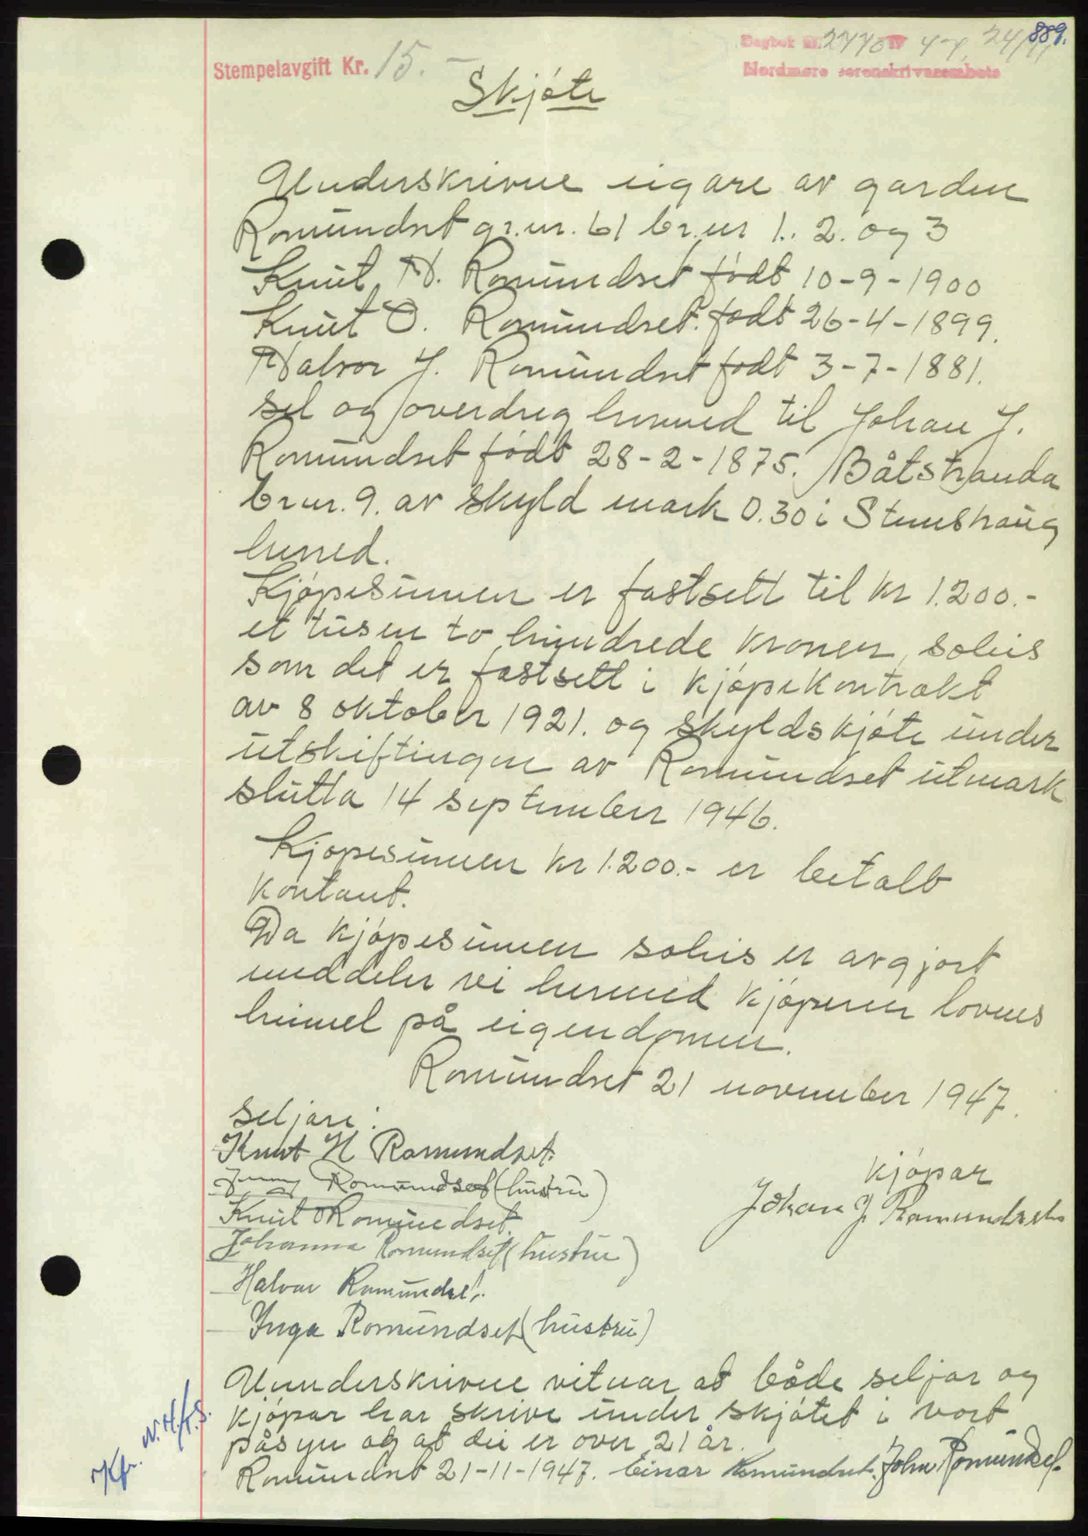 889.
Stempelavgift Kr. 15.-
Dagbok nr. 2770 IV 47, 24/11
Nordmøre sorenskriverembete
Skjøte
Underskrivne eigare av garden
Romundset gr.nr. 61 br.nr 1. 2. og 3
Knut H. Romundset født 10-9-1900
Knut O. Romundset. født 26-4-1899.
Halvor J. Romundset født 3-7-1881.
sel og overdreg hermed til Johan J.
Romundset født 28-2-1875. Båtstranda
br.nr. 9. av skyld mark 0.30 i Stemshaug
herred.
Kjøpesumen er fastsett til kr 1.200.-
et tusen to hundrede kroner, soleis
som det er fastsett i kjøpekontrakt
av 8 oktober 1921. og skyldskjøte under
utskiftingen av Romundset utmark
slutta 14 september 1946.
Kjøpesumen kr 1.200.- er betalt
kontant.
Da kjøpesumen soleis er avgjort
meddeler vi hermed kjøperen lovens
heimel på eigendomen.
Romundset 21 november 1947.
Seljare:
Knut H Romundset.
Jenny Romundset (hustru)
Knut O Romundset.
Johanna Romundset (hustru)
Halvor Romundset.
Inga Romundset (hustru)
kjøpar
Johan J Romundset
Uunderskrivne vitnar at både seljar og
kjøpar har skrive under skjøtet i vort
påsyn og at dei er over 21 år.
Romundset 21-11-1947. Einar Romundset. John Romundset.
N.H/T.S.